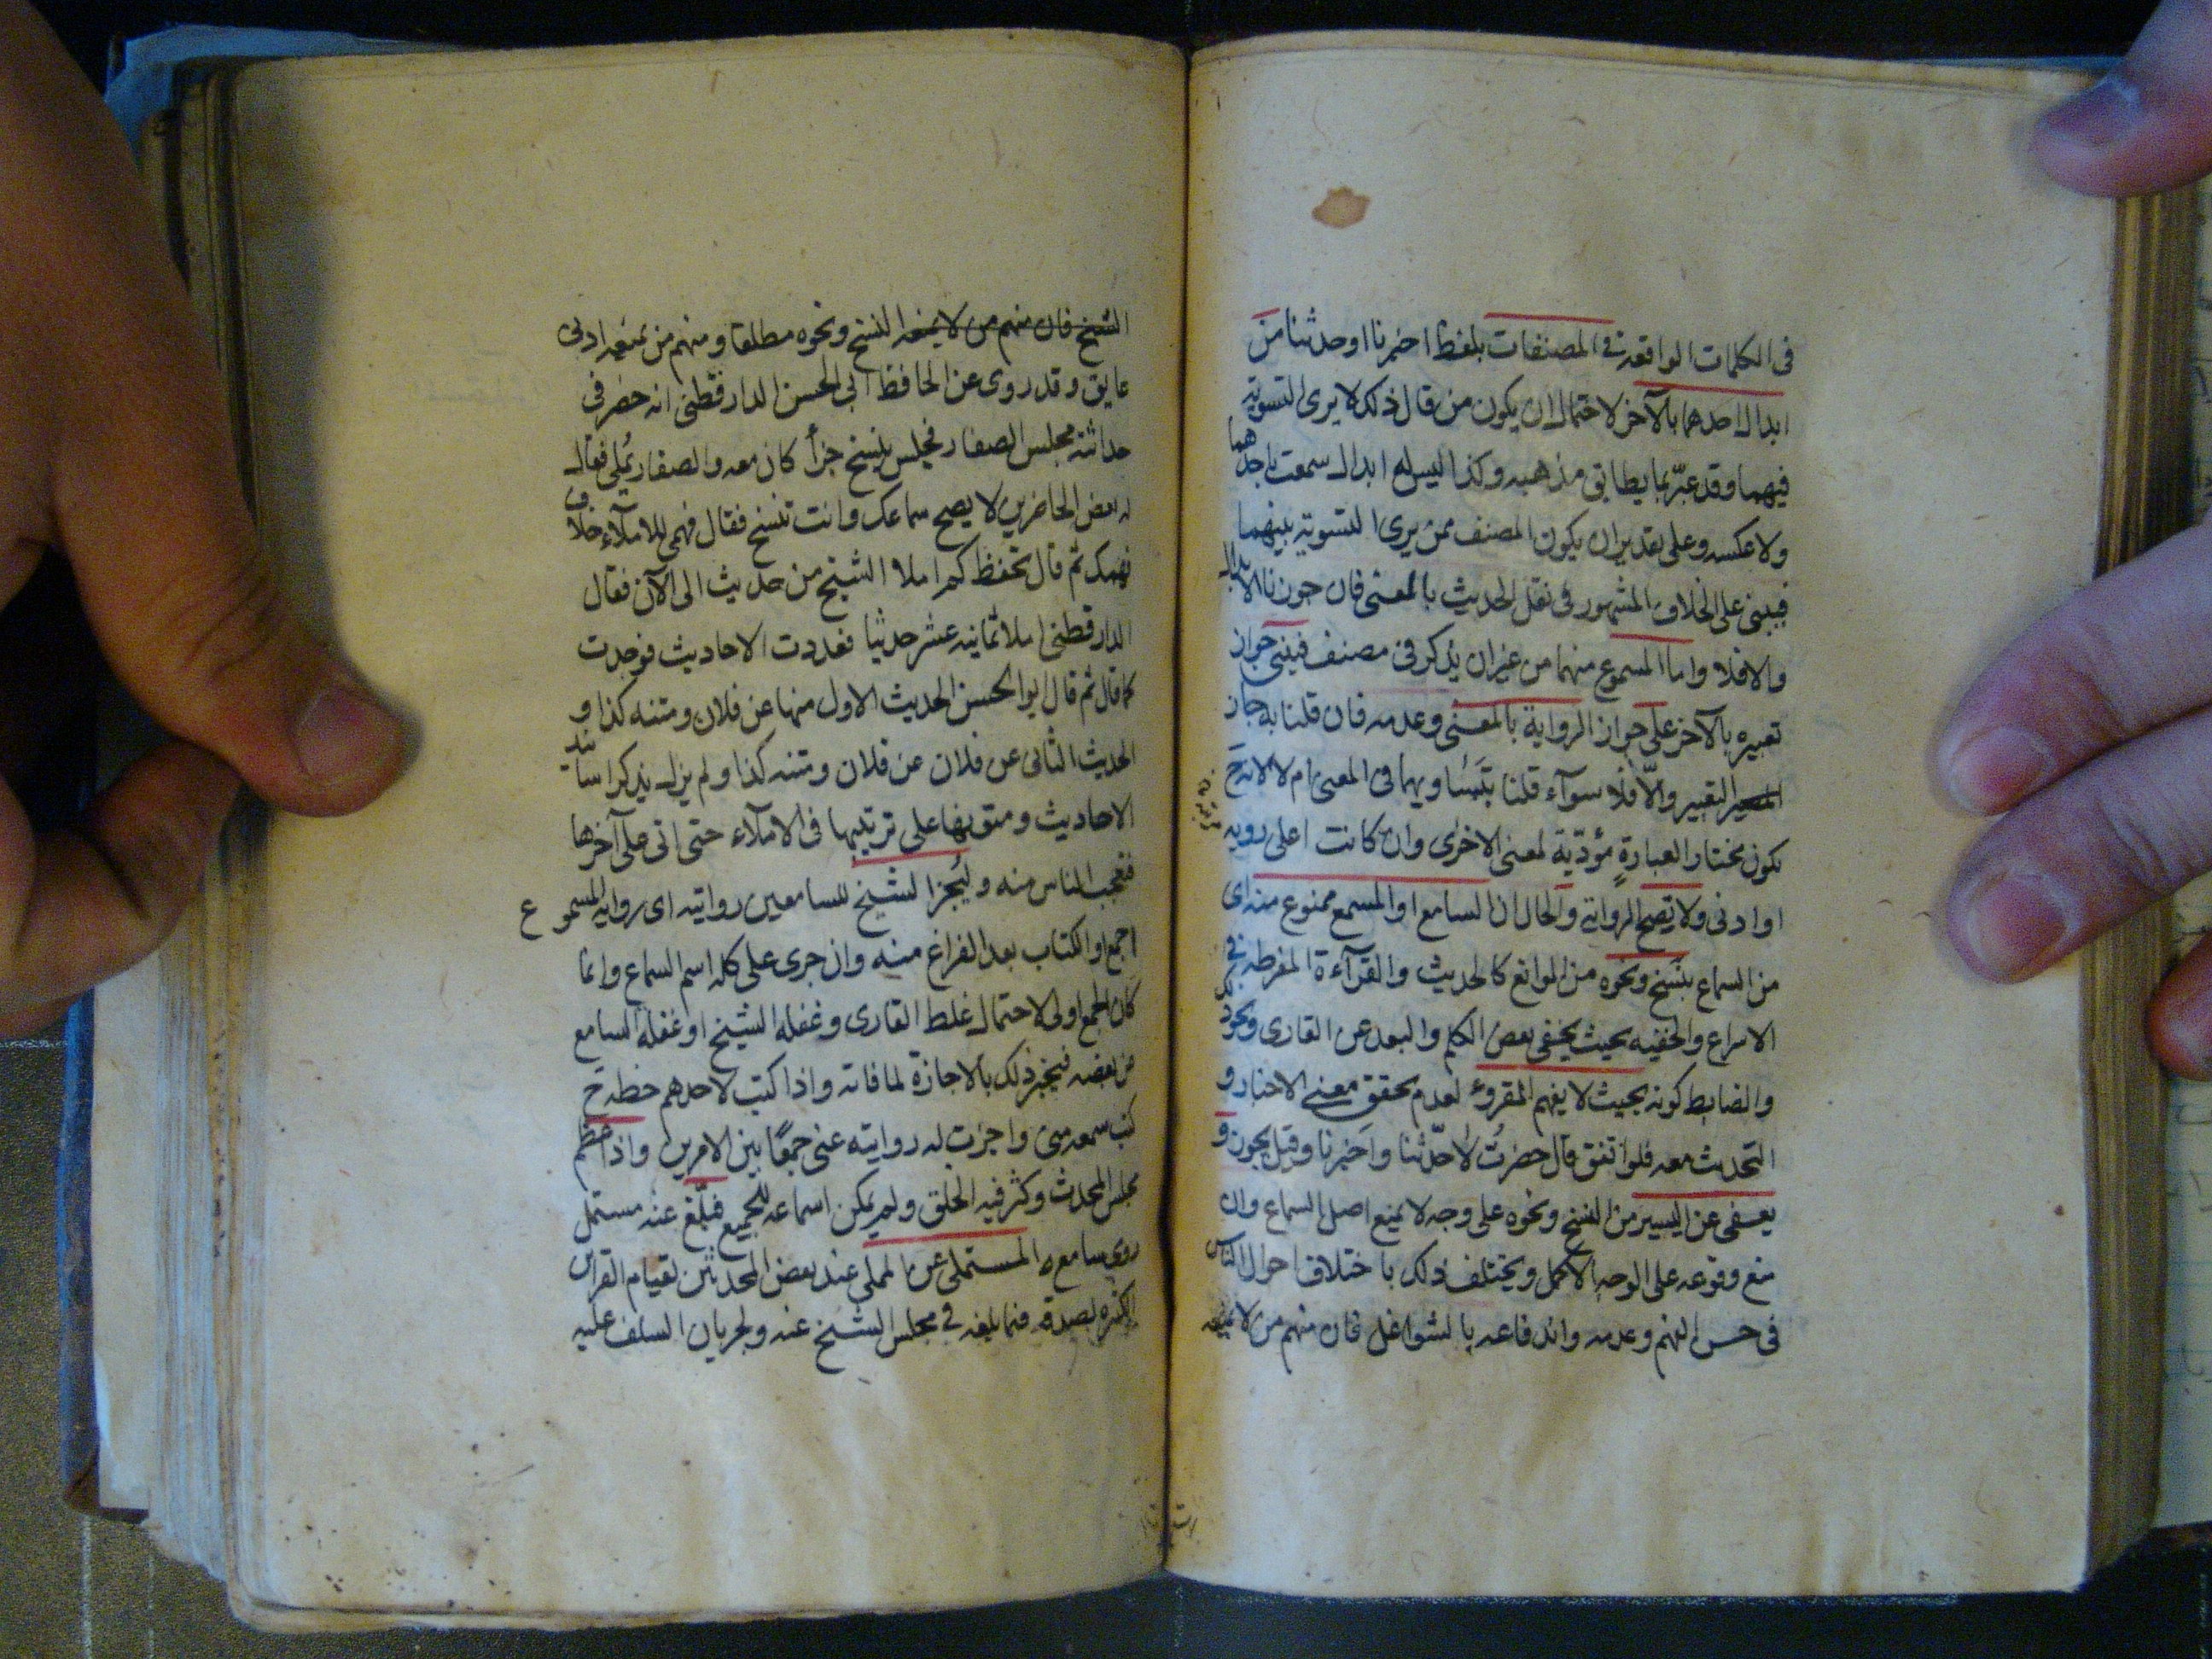 في الكلمات الواقعة في المصنفات بلفظ اخبرنا او حدثنا من
ابدال احدهما بالآخر لاحتمال ان يكون من قال ذلك لا يرى التسوية
فيهما وقد عبّر بما يطابق مذهبه وكذا ليس له ابدال سمعت باحدهما
ولا عكسه وعلى تقدير ان يكون المصنف ممن يرى التسوية بينهما
فيبنى على الخلاف المشهور في نقل الحديث بالمعنى فان جوزنا الابدال
والا فلا واما المسموع منهما من غير ان يذكر في مصنف فيبنى جواز
تعبيره بالآخر على جواز الرواية بالمعنى وعدمه فان قلنا به جاز
التعبير والّا فلا سوآء قلنا بتساويهما في المعنى ام لا لانه ح
يكون مختار العبارةٍ مؤدّية لمعنى الاخرى وان كانت اعلى رويه
او ادنى ولا تصح الرواية والحال ان السامع او المسمع ممنوع منه اى
من السماع بنسخ ونحوه من الموانع كالحديث والقرآءة المفرطة في
الاسراع والخفيه بحيث يخفى بعض الكلم والبعد عن القارى ونحو ذلك
والضابط كونه بحيث لا يفهم المقروء لعدم تحقق معنى الاخبار و
التحديث معه فلو اتفق قال حضرتُ لا حدّثنا واخبرنا وقيل يجوز و
يعفى عن اليسير من النسخ ونحوه على وجه لا يمنع اصل السماع وان
منع وقوعه على الوجه الاكمل ويختلف ذلك باختلاف احوال الناس
في حسن الفهم وعدمه واندفاعه بالشواغل فان منهم من لا يمنعه
الشيخ فان منهم من لا يمنعه النسخ ونحوه مطلقا ومنهم من يمنعه ادنى
عايق وقد روى عن الحافظ ابى الحسن الدارقطني انه حضر في
حداثته مجلس الصفار فجلس ينسخ جزأ كان معه والصفار يُملى فقال
له بعض الحاضرين لا يصح سماعك وانت تنسخ فقال فهمى للاملآء خلاف
فهمك ثم قال تحفظ كم املا الشيخ من حديث الى الآن فقال
الدارقطني املا ثمانية عشر حديثا فعددت الاحاديث فوجدت
كما قال ثم قال ابو الحسن الحديث الاول منها عن فلان ومتنه كذا و
الحديث الثانى عن فلان عن فلان ومتنه كذا ولم يزل يذكر اسانيد
الاحاديث ومتونها على ترتيبها في الاملآء حتى اتى على آخرها
فتعجب الناس منه وليُجز الشيخ للسامعين روايته اى رواية المسموع
اجمع او الكتاب بعد الفراغ منه وان جرى على كله اسم السماع وانما
كان الجمع اولى لاحتمال غلط القارى وغفلة الشيخ او غفلة السامع
عن بعضه فينجبر ذلك بالاجازة لما فاته واذا كتب لاحدهم خطه ح
كتب سمعه منى واجزت له روايته عنى جمعًا بين الامرين واذا عظم
مجلس المحدث وكثر فيه الخلق ولم يمكن اسماعه للجميع فبلّغ عنه مستمل
روى سامع المستملى عن المملى عند بعض المحدثين لقيام القراين
الكثيرة بصدقه فيما بلغه في مجلس الشيخ عنه ولجريان السلف عليه